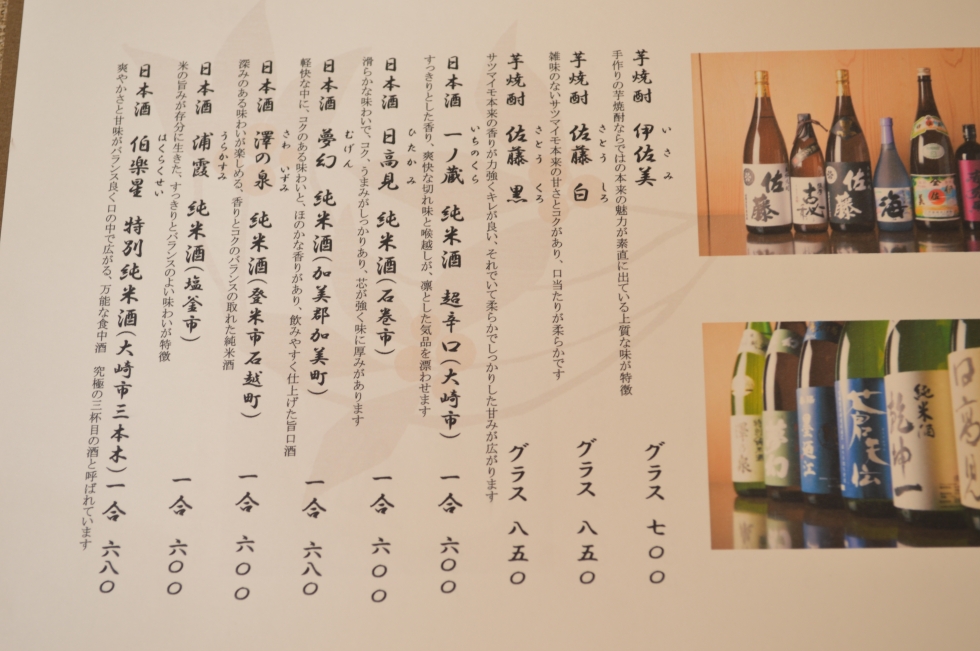 いさみ
芋焼酎 伊佐美 グラス 七〇〇
手作りの芋焼酎ならではの本来の魅力が素直に出ている上質な味が特徴
さとう しろ
芋焼酎 佐藤 白 グラス 八五〇
雑味のないサツマイモ本来の甘さとコクがあり、口当たりが柔らかです
さとう くろ
芋焼酎 佐藤 黒 グラス 八五〇
サツマイモ本来の香りが力強くキレが良い、それでいて柔らかでしっかりした甘みが広がります
いちのくら
日本酒 一ノ蔵 純米酒 超辛口(大崎市) 一合 六〇〇
すっきりとした香り、爽快な切れ味と喉越しが、凛とした気品を漂わせます
ひたかみ
日本酒 日高見 純米酒(石巻市) 一合 六〇〇
滑らかな味わいで、コク、うまみがしっかりあり、芯が強く味に厚みがあります
むげん
日本酒 夢幻 純米酒(加美郡加美町) 一合 六八〇
軽快な中に、コクのある味わいと、ほのかな香りがあり、飲みやすく仕上げた旨口酒
さわ いずみ
日本酒 澤の泉 純米酒(登米市石越町) 一合 六〇〇
深みのある味わいが楽しめる、香りとコクのバランスの取れた純米酒
うらかすみ
日本酒 浦霞 純米酒(塩釜市) 一合 六〇〇
米の旨みが存分に生きた、すっきりとバランスのよい味わいが特徴
はくらくせい
日本酒 伯楽星 特別純米酒(大崎市三本木) 一合 六八〇
爽やかさと甘味がバランス良く口の中で広がる、万能な食中酒 究極の三杯目の酒と呼ばれています
佐藤
佐藤
海
純米酒
乾坤一
蒼天伝
特別純米酒